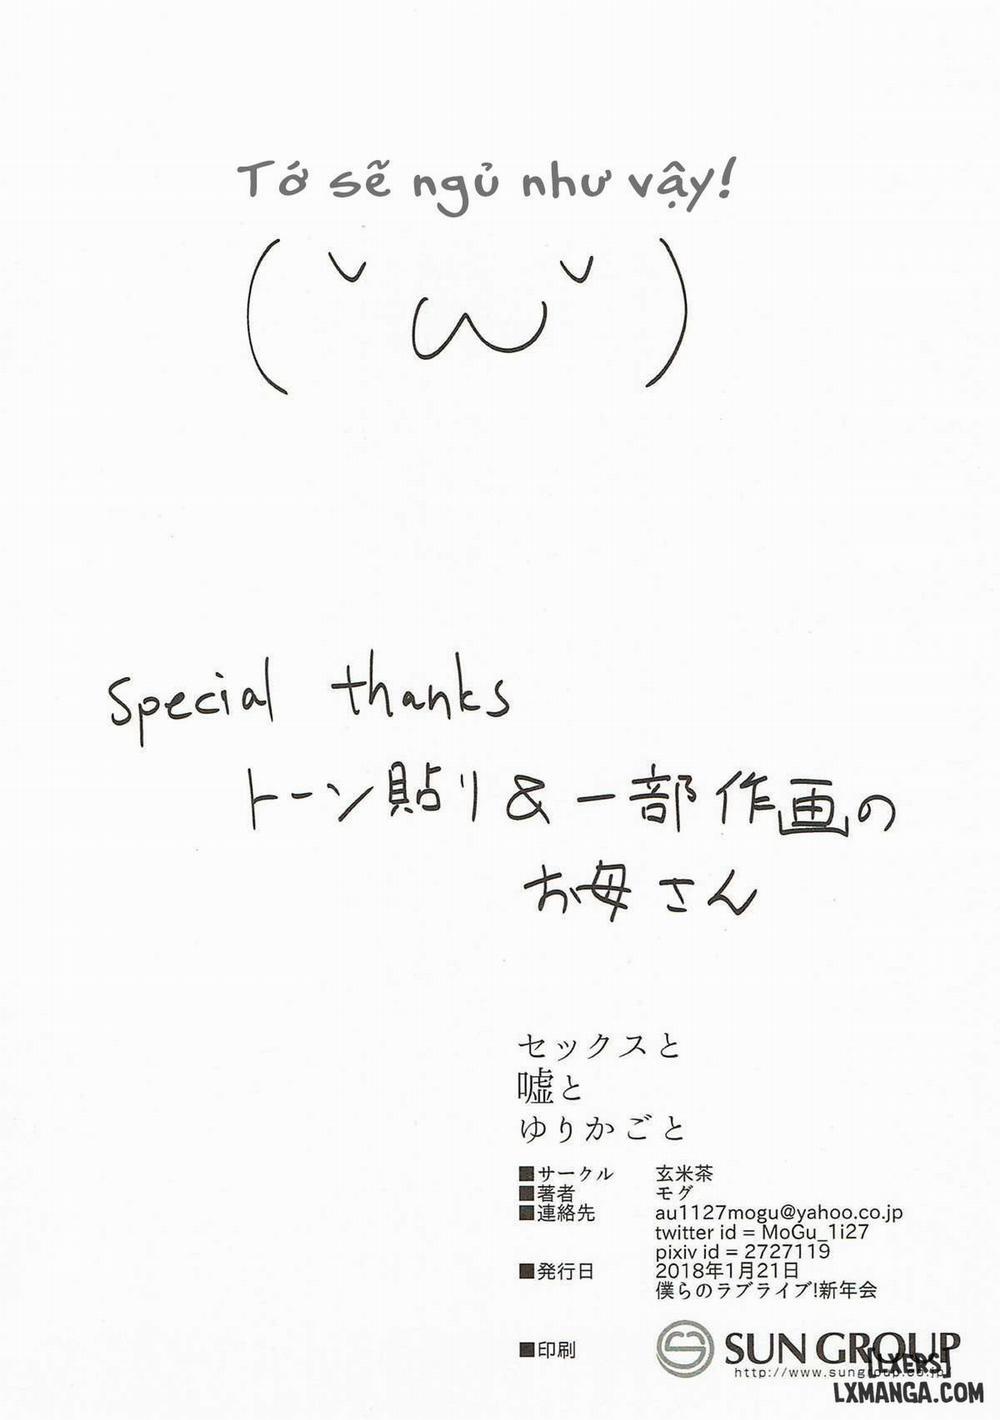 Tớ sẽ ngủ như vậy!
(ˇωˇ)
special thanks
トーン貼り&一部作画の
お母さん
セックスと
嘘と
ゆりかごと
■サークル 玄米茶
■著者 モグ
■連絡先 au1127mogu@yahoo.co.jp
twitter id = MoGu_1i27
pixiv id = 2727119
■発行日 2018年1月21日
僕らのラブライブ!新年会
■印刷 SUN GROUP
http://www.sungroup.co.jp
[LXERS]
LXMANGA.COM